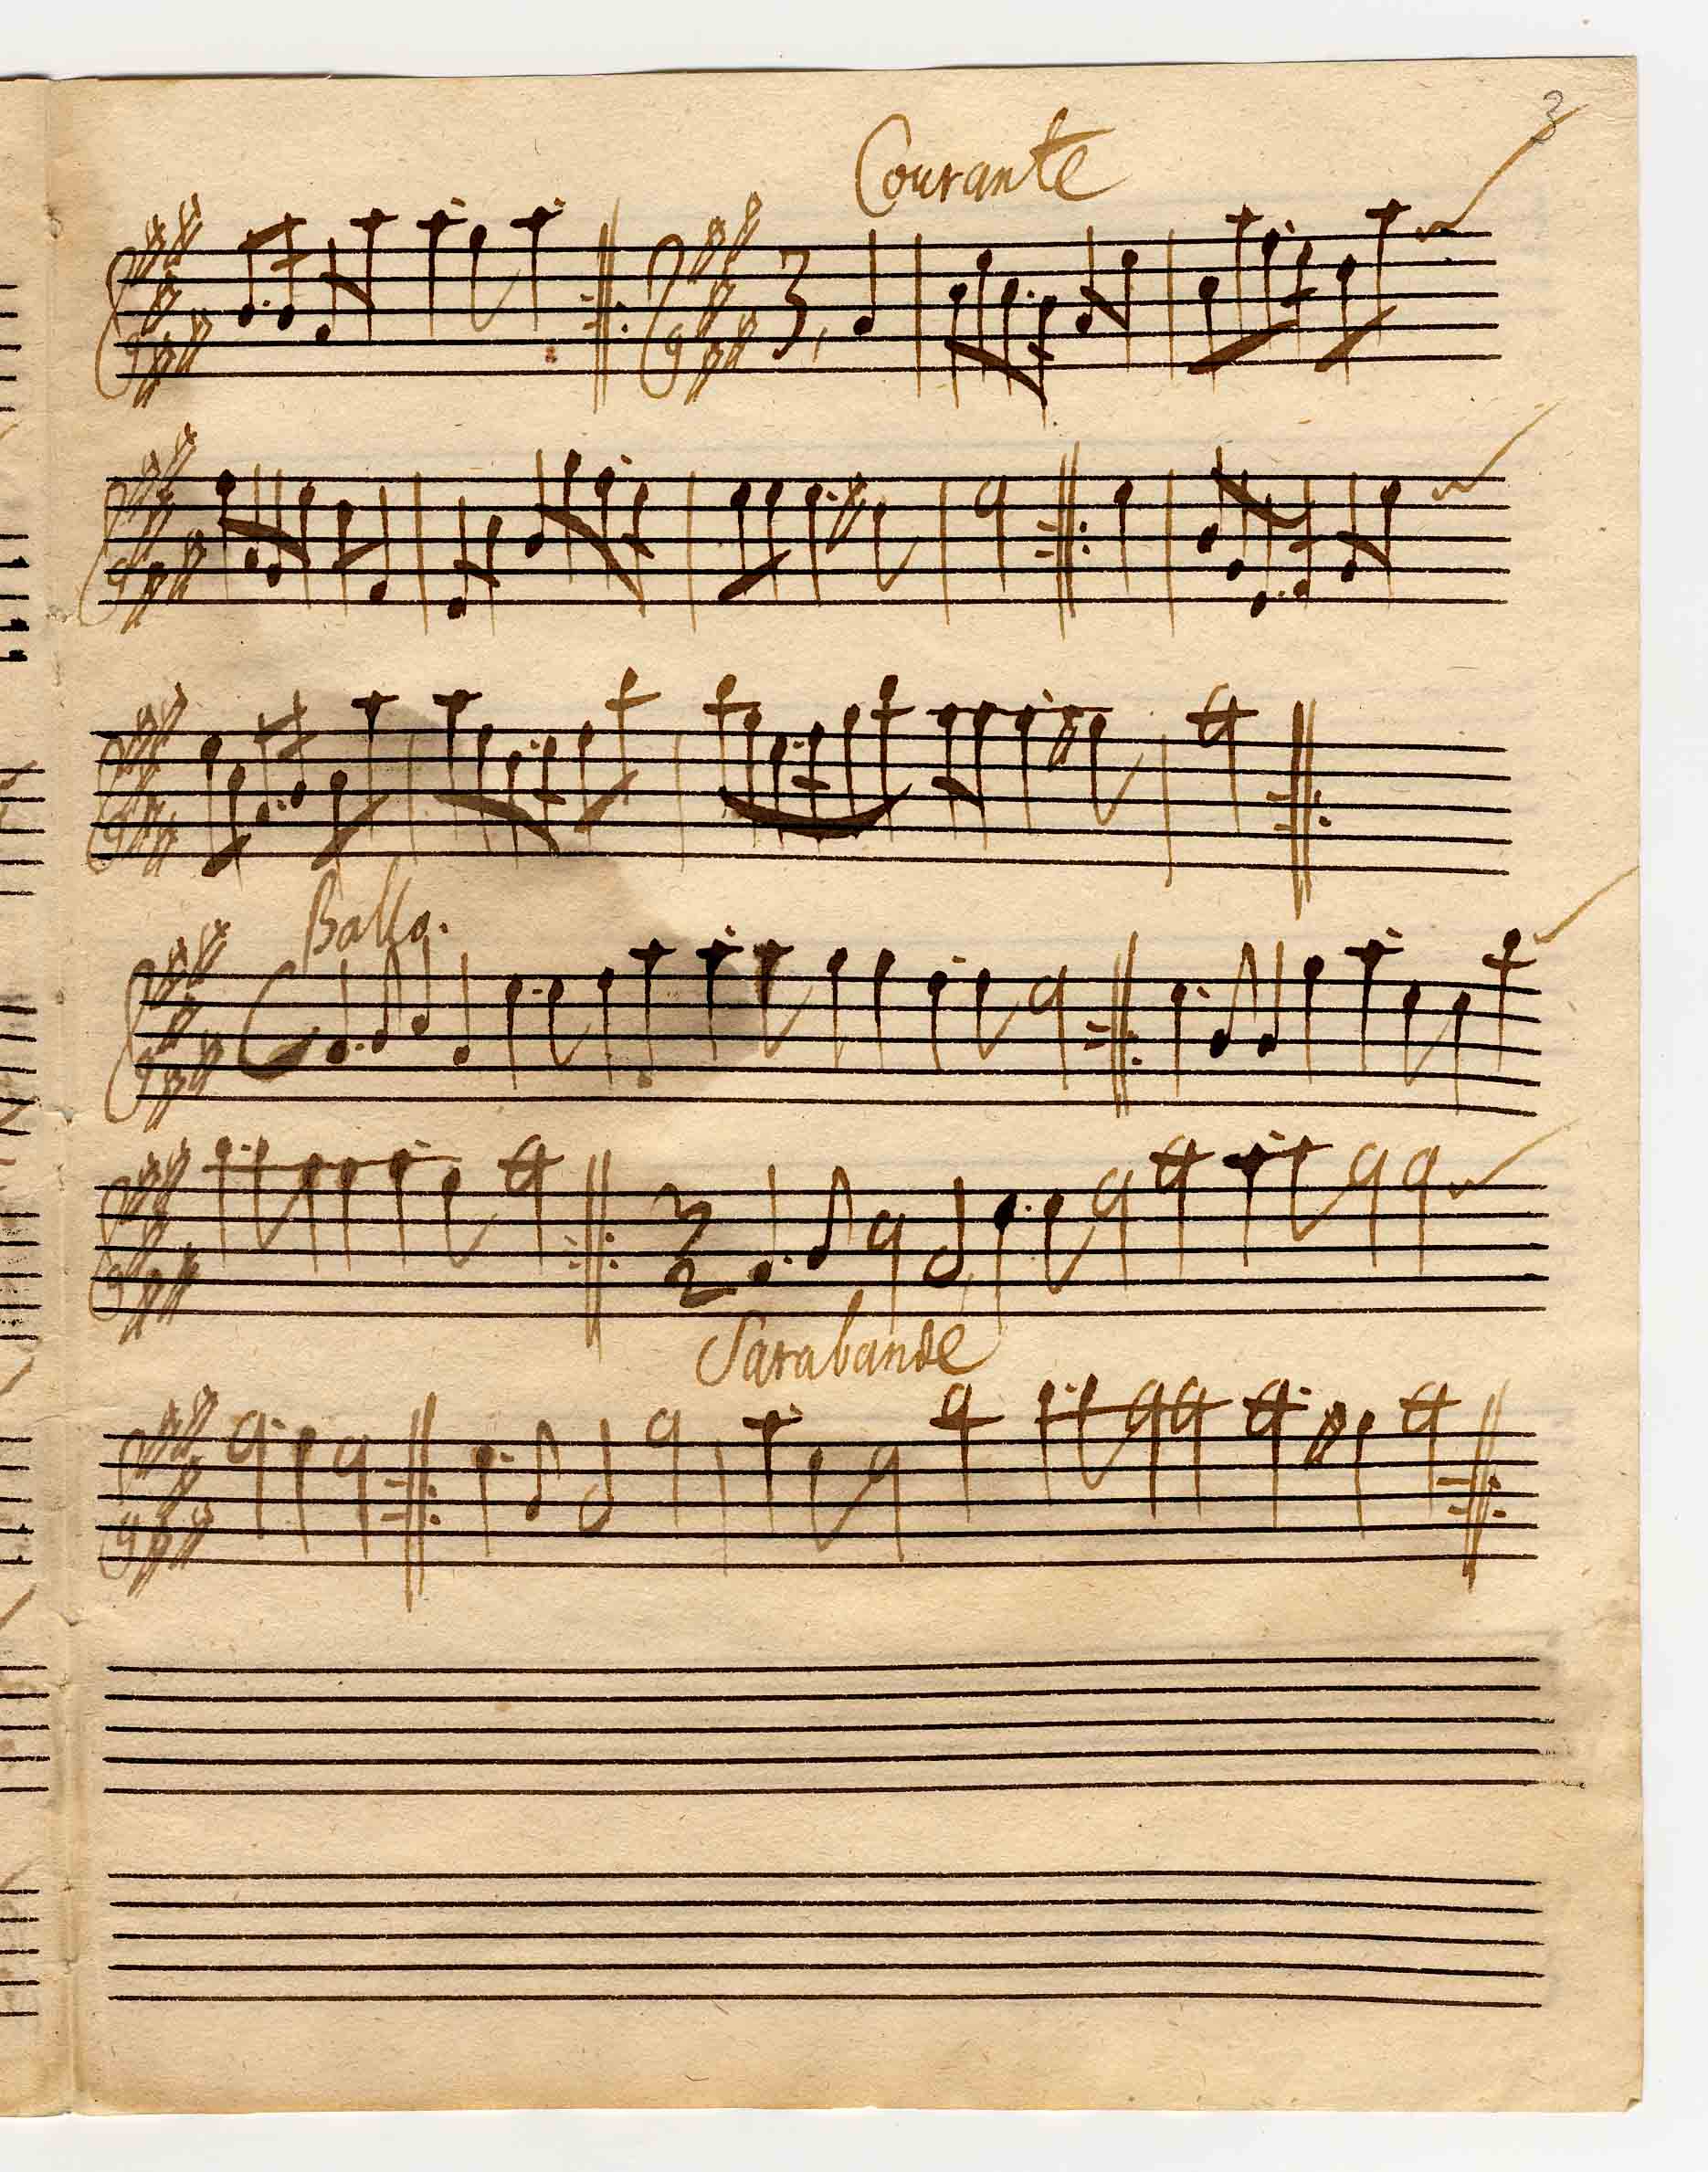 3
Courante
3
Ballo.
3
2
Sarabande